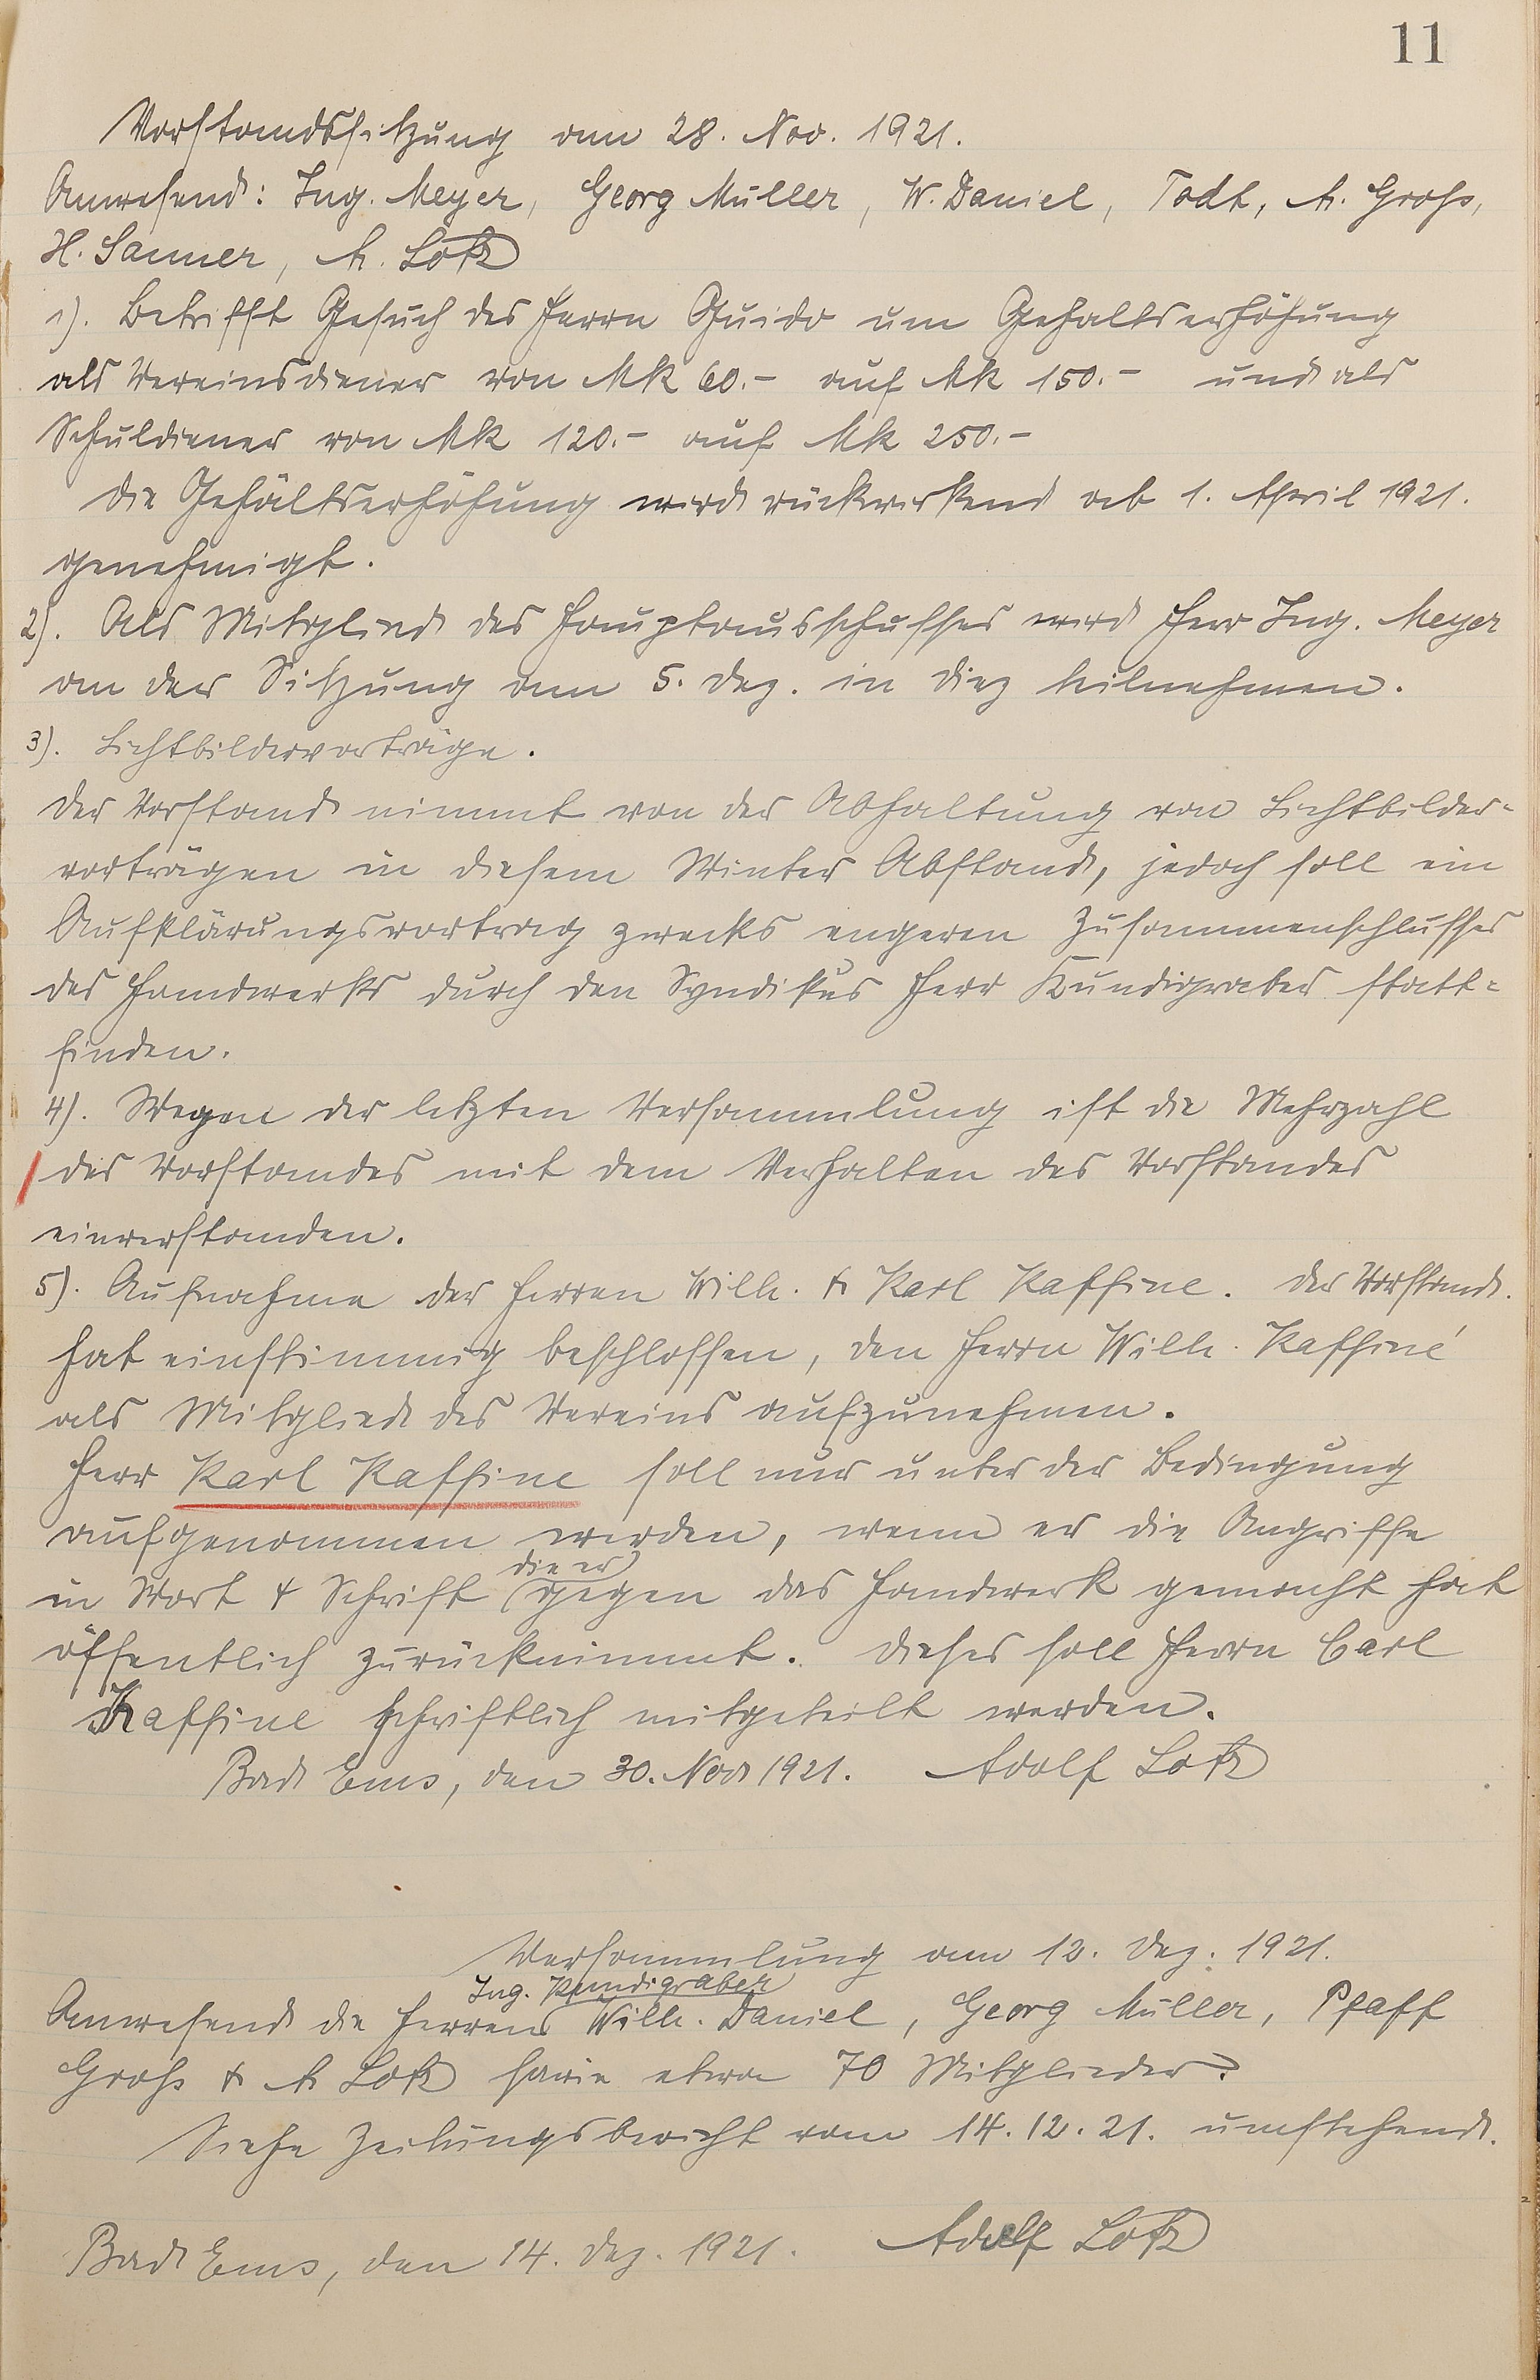 11
Vorstandssitzung am 28. Nov. 1921.
Anwesend: Ing. Meyer, Georg Müller, W. Daniel, Todt, A. Groß,
H. Sanner, A. Lotz
1). Betrifft Gesuch des Herrn Guido um Gehaltserhöhung
als Vereinsdiener von Mk 60.- auf Mk 150.- und als
Schuldiener von Mk 120.- auf Mk 250.-
Die Gehältserhöhung wird rückwirkend ab 1. April 1921.
genehmigt.
2). Als Mitglied des Hauptausschusses wird Herr Ing. Meyer
an der Sitzung am 5. Dez. in Diez teilnehmen.
3). Lichtbildervorträge.
Der Vorstand nimmt von der Abhaltung von Lichtbilder-
vorträgen in diesem Winter Abstand, jedoch soll ein
Aufklärungsvortrag zwecks engeren Zusammenschlusses
des Handwerks durch den Syndikus Herr Kundigraber statt-
finden.
4). Wegen der letzten Versammlung ist die Mehrzahl
des Vorstandes mit dem Verhalten des Vorstandes
einverstanden.
5). Aufnahme der Herren Wilh. & Karl Kaffine. Der Vorstand.
hat einstimmig beschlossen, den Herrn Wilh. Kaffiné
als Mitglied des Vereins aufzunehmen.
Herr Karl Kaffine soll nur unter der Bedingung
aufgenommen werden, wenn er die Angriffe
die er
in Wort & Schrift (gegen das Handwerk gemacht hat
öffentlich zurücknimmt. Dieses soll Herrn Carl
Kaffine schriftlich mitgeteilt werden.
Bad Ems, den 30. Nov 1921. Adolf Lotz
Versammlung am 12. Dez. 1921.
Ing. Kundigraber
Anwesend die Herren Wilh. Daniel, Georg Müller, Pfaff
Groß & A Lotz sowie etwa 70 Mitglieder.
Siehe Zeitungsbericht vom 14.12.21. umstehend.
Bad Ems, den 14. Dez. 1921. Adolf Lotz